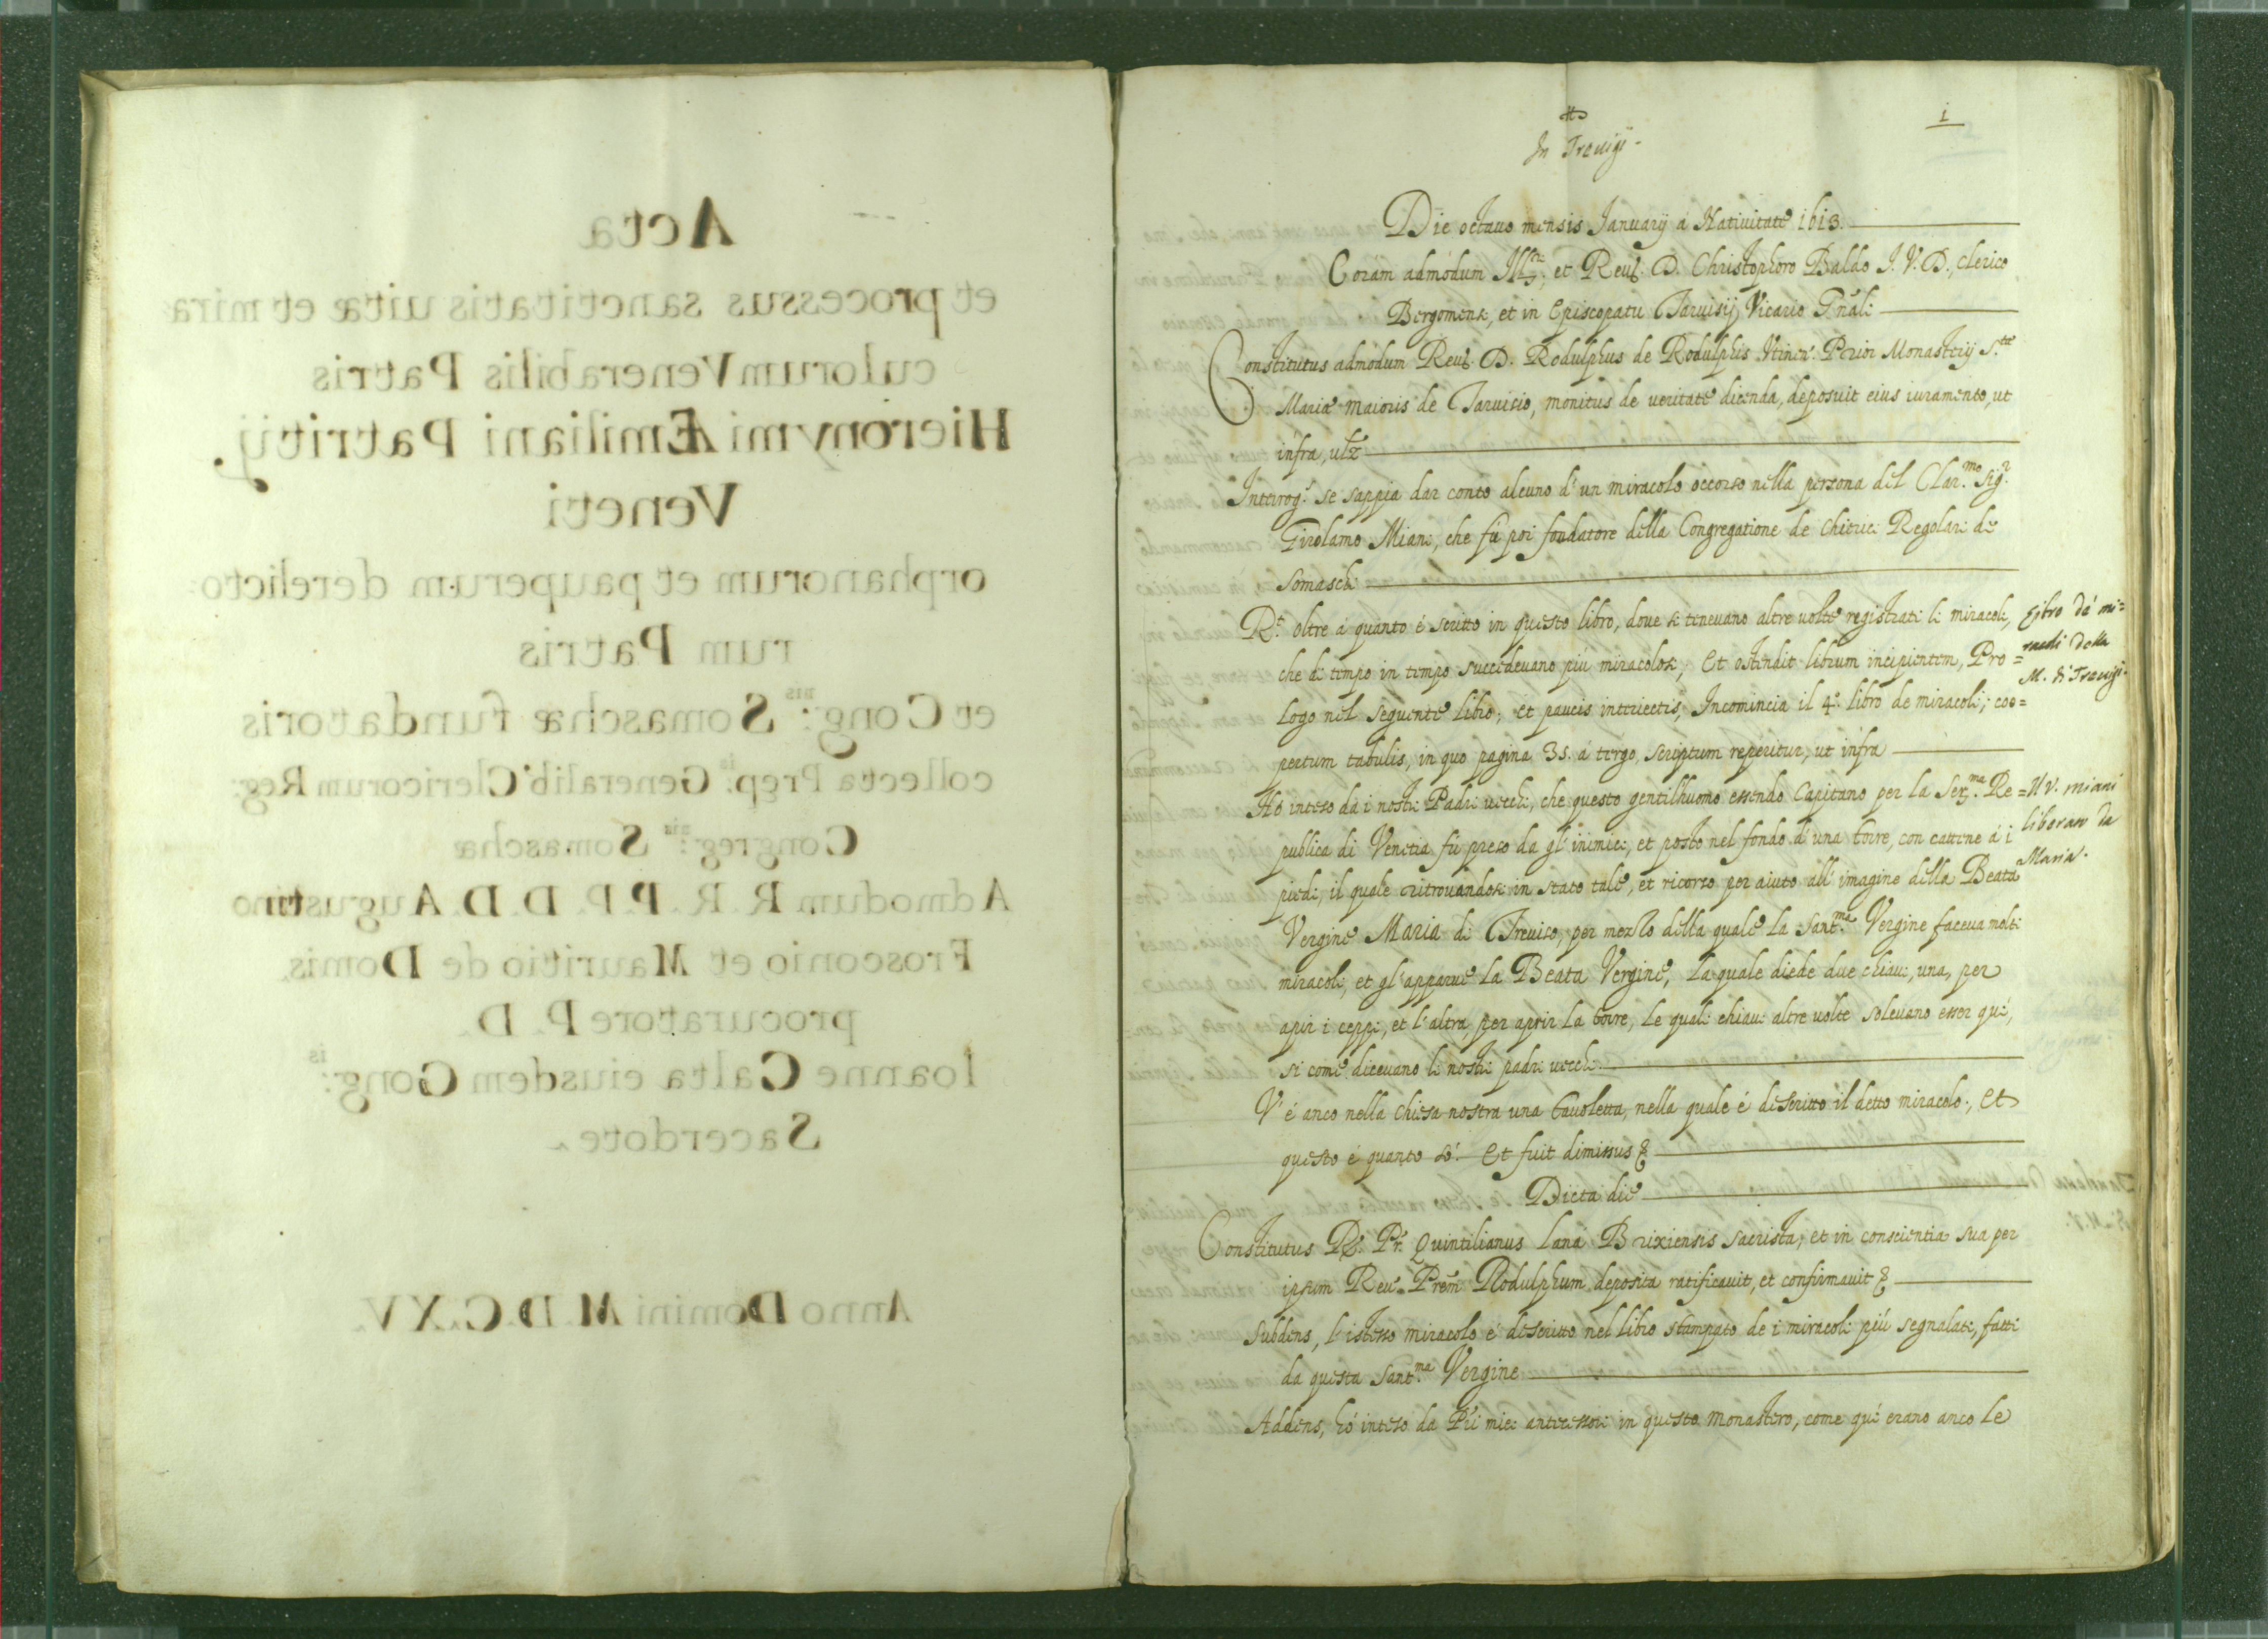 Acta
et processus sanctitatis uitæ et mira
culorum Venerabilis Patris
Hieronymi Æmiliani Patritij
Veneti
orphanorum et pauperum derelicto
rum Patris
et Cong:nis Somaschæ fundatoris
collecta Prep:is Generalib' Clericorum Reg:
Congreg:nis Somaschæ
Admodum R. R. P. P. D. D. Augustino
Frosconio, et Mauritio de Domis
procuratore P. D.
Ioanne Calta eiusdem Cong:is
Sacerdote
Anno Domini M.D.C.XV.
1
In Treuigi
Die octauo mensis Januarij á Natiuitate 1613.
Corám admódum Ill.re, et Reu. D. Christophoro Baldo J. V. D., clerico
Bergomens, et in Episcopatu Taruisij Vicario G'nali
Constitutus admódum Reu. D. Rodulphus de Rodulphis Prior Monasterij S.tæ
Mariæ maioris de Taruisio, monitus de ueritate dicenda, deposuit eius iuramento, ut
infra,
Interrog.s se sappia dar conto alcuno d'un miracolo occorso nella persona del Clar.mo Sig.r
Girolamo Miani, che fú poi fondatore della Congregatione de Chierici Regolari de
Somasch
R.t oltre á quanto é scritto in questo libro, doue si teneuano altre uolte registrati li miracoli,
che di tempo in tempo succedeuano piu miracolosi; Et ostendit librum incipientem, Pro=
logo nel seguente libro; et paucis interiectis, Incomincia il 4.o libro de miracoli; coo=
pertum tabulis, in quo pagina 35. á tergo, scriptum reperitur, ut infra
Libro dá mi=
racoli della
M. di Treuigi.
Hó inteso da i nostri Padri uecchi, che questo gentilhuomo essendo Capitano per la Ser.ma Re=
publica di Venetia fú preso da gl'inimici, et posto nel fondo d'una torre, con cattene á i
piedi, il quale ritrouandosi in stato tale, et ricorso per aiuto all'imagine della Beata
Vergine Maria di Treuiso, per mezzo della quale la Sant.ma Vergine faceua molti
miracoli, et gl'apparue la Beata Vergine, la quale diede due chiaui, una, per
apir i ceppi, et l'altra per aprir la torre, le quali chiaui altre uolte soleuano esser quí,
si come diceuano li nostri padri uecchi.
Il V. Miani
liberato da
Maria.
V'é anco nella chiesa nostra una tauoletta, nella quale é descritto il detto miracolo., Et
questo é quanto só. Et fuit dimissus
Dicta die
Constitutus R. Pr. Quintilianus Lana Brixiensis sacrista, et in conscientia sua per
ipsum Reu. Prem Rodulphum deposita ratificauit, et confirmauit
Subdens, l'istesso miracolo é descritto nel libro stampato de i miracoli piú segnalati, fatti
da questa Sant.ma Vergine
Addens, hó inteso da miei antecessori in questo monastero, come quí erano anco le